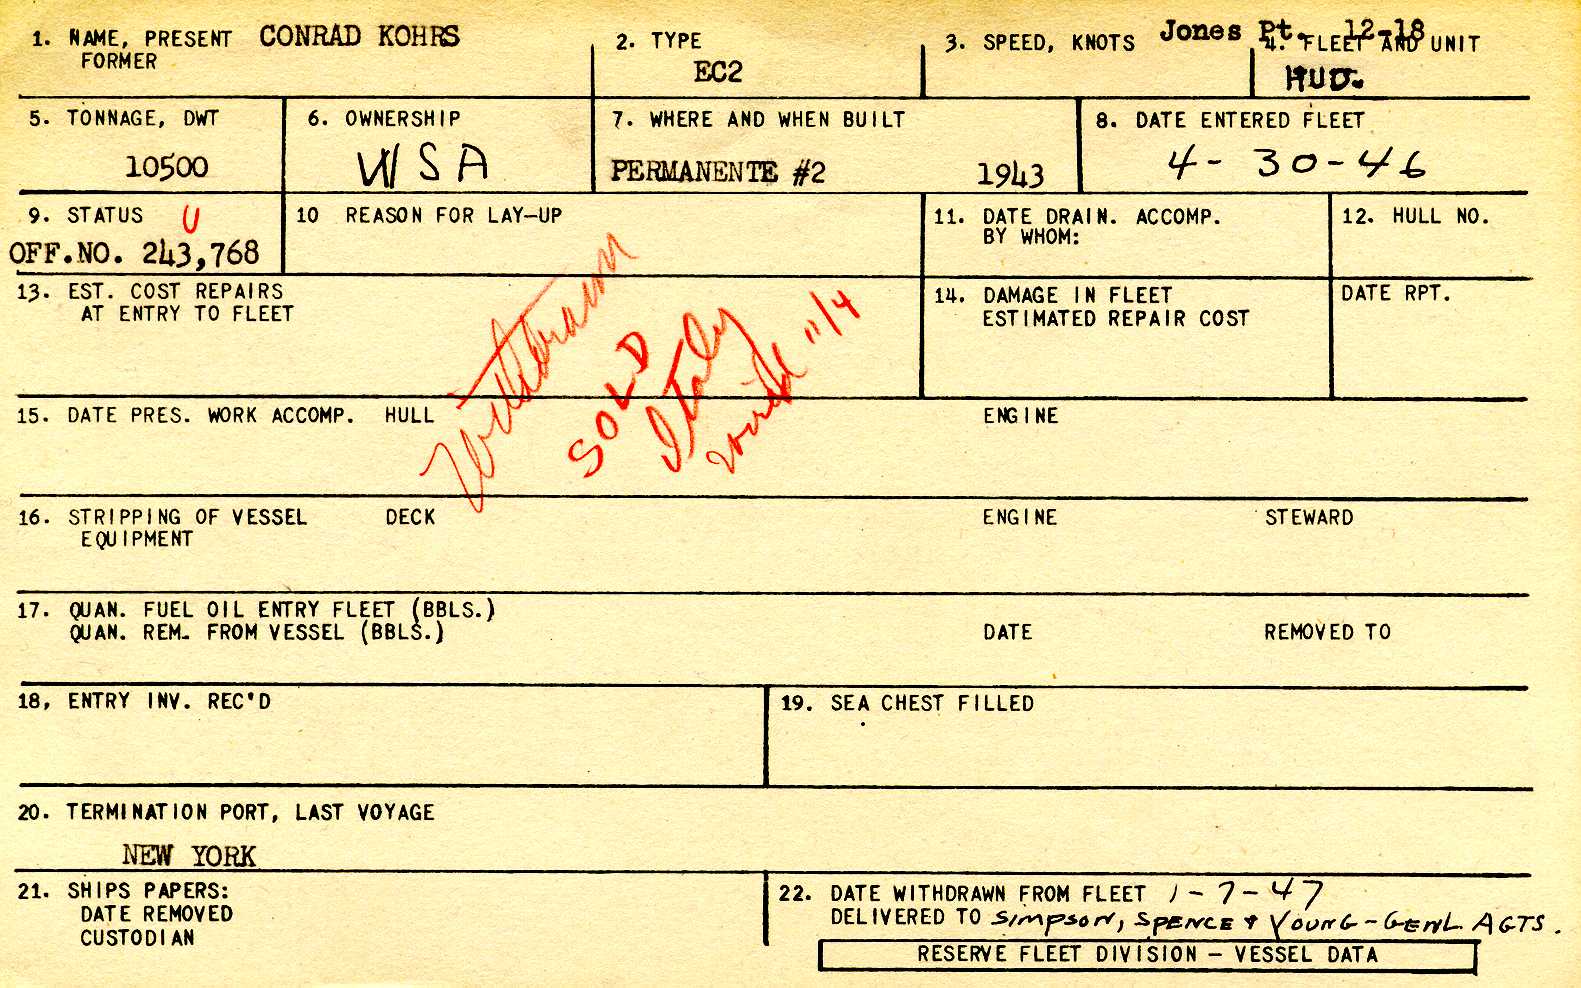 1. NAME, PRESENT CONRAD KOHRS
FORMER
2. TYPE
EC2
3. SPEED, KNOTS
Jones Pt. 12-18
4. FLEET AND UNIT
HUD.
5. TONNAGE, DWT
10500
6. OWNERSHIP
WSA
7. WHERE AND WHEN BUILT
PERMANENTE #2 1943
8. DATE ENTERED FLEET
4-30-46
9. STATUS U
OFF.NO. 243,768
10 REASON FOR LAY-UP
11. DATE DRAIN. ACCOMP.
BY WHOM:
12. HULL NO.
13. EST. COST REPAIRS
AT ENTRY TO FLEET
Withdrawn
SOLD
Italy
11/4
14. DAMAGE IN FLEET
ESTIMATED REPAIR COST
DATE RPT.
15. DATE PRES. WORK ACCOMP. HULL ENGINE
16. STRIPPING OF VESSEL DECK ENGINE STEWARD
EQUIPMENT
17. QUAN. FUEL OIL ENTRY FLEET (BBLS.)
QUAN. REM. FROM VESSEL (BBLS.) DATE REMOVED TO
18, ENTRY INV. REC'D
19. SEA CHEST FILLED
20. TERMINATION PORT, LAST VOYAGE
NEW YORK
21. SHIPS PAPERS:
DATE REMOVED
CUSTODIAN
22. DATE WITHDRAWN FROM FLEET 1-7-47
DELIVERED TO SIMPSON, SPENCE & YOUNG-GENL AGTS.
RESERVE FLEET DIVISION - VESSEL DATA